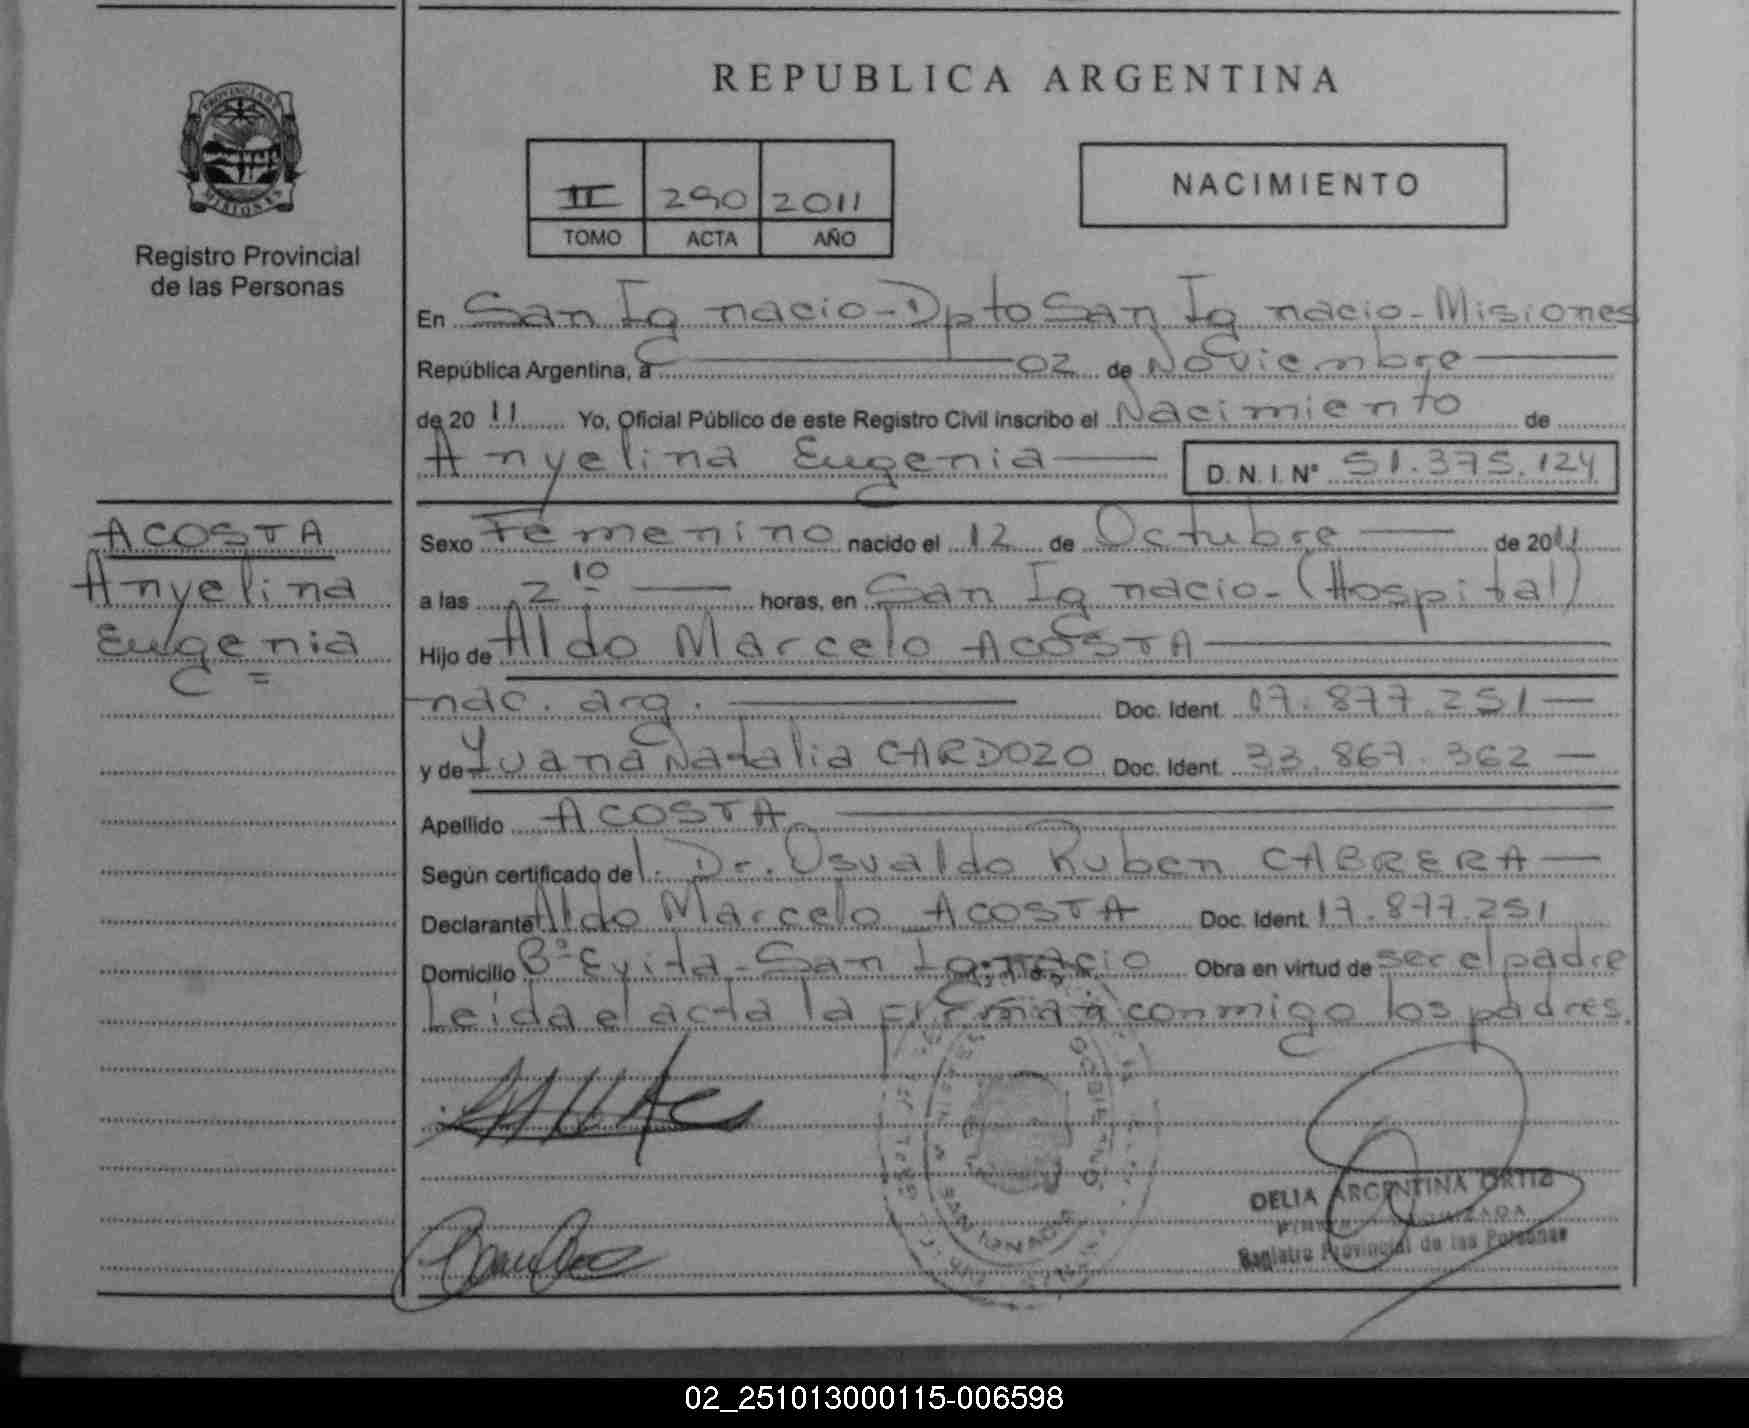 REPUBLICA ARGENTINA
PROVINCIA DE
MISIONES
Registro Provincial
de las Personas
II 290 2011
TOMO ACTA AÑO
NACIMIENTO
En San Ignacio-Dpto San Ignacio-Misiones
República Argentina, a 02 de Noviembre
de 20 11 Yo, Oficial Público de este Registro Civil inscribo el Nacimiento de
Anyelina Eugenia D.N.I. Nº 51.375.124
ACOSTA
Anyelina
Eugenia =
Sexo Femenino nacido el 12 de Octubre de 2011
a las 2 10 horas, en San Ignacio-(Hospital)
Hijo de Aldo Marcelo ACOSTA
nac. arg. Doc. Ident. 17.877.251
y de Yuana Natalia CARDOZO Doc. Ident. 33.867.362
Apellido ACOSTA
Según certificado del. Dr. Osvaldo Ruben CABRERA
Declarante Aldo Marcelo ACOSTA Doc. Ident. 17.877.251
Domicilio Bº Evita-San Ignacio Obra en virtud de ser el padre
Leida el acta la firman conmigo los padres.
GOBIERNO
SAN IGNACIO
DELIA ARGENTINA ORTIZ
Registro Provincial de las Personas
02_251013000115-006598